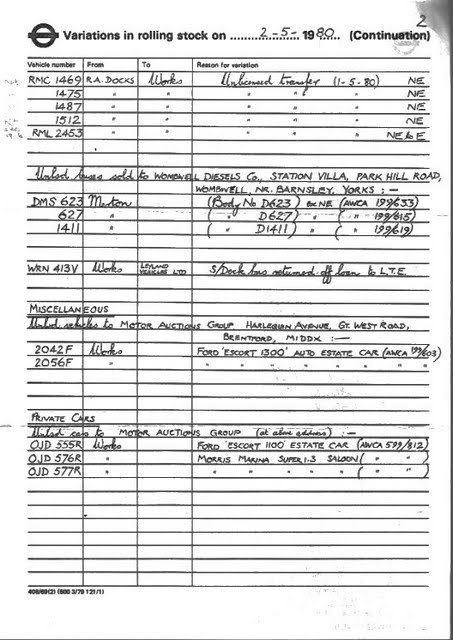 2
Variations in rolling stock on 2-5- 1980 (Continuation)
Vehicle number From To Reason for variation
RMC 1469 R.A. DOCKS Works Unlicensed transfer (1-5-80) NE
1475 " " " " " NE
1487 " " " " " NE
1512 " " " " " NE
RML 2453 " " " " " NE & E
Unlsd buses sold to WOMBWELL DIESELS Co., STATION VILLA, PARK HILL ROAD,
WOMBWELL, NR. BARNSLEY, YORKS :—
DMS 623 Merton (Body No D623) ex NE (AWCA 199/633)
627 " ( " D627) " ( " 199/615)
1411 " ( " D1411) " ( " 199/619)
WRN 413V Works LEYLAND VEHICLES LTD S/Deck bus returned off loan to L.T.E.
MISCELLANEOUS
Unlsd vehicles to MOTOR AUCTIONS GROUP HARLEQUIN AVENUE, GT. WEST ROAD,
BRENTFORD, MIDDX :—
2042F Works FORD 'ESCORT 1300' AUTO ESTATE CAR (AWCA 199/603)
2056F " " " " " " " "
PRIVATE CARS
Unlsd cars to MOTOR AUCTIONS GROUP (at above address) :—
OJD 555R Works FORD 'ESCORT 1100' ESTATE CAR (AWCA 599/812)
OJD 576R " MORRIS MARINA SUPER 1.3 SALOON ( " " )
OJD 577R " " " " " ( " " )
408/69(2) (500 3/79 121/1)